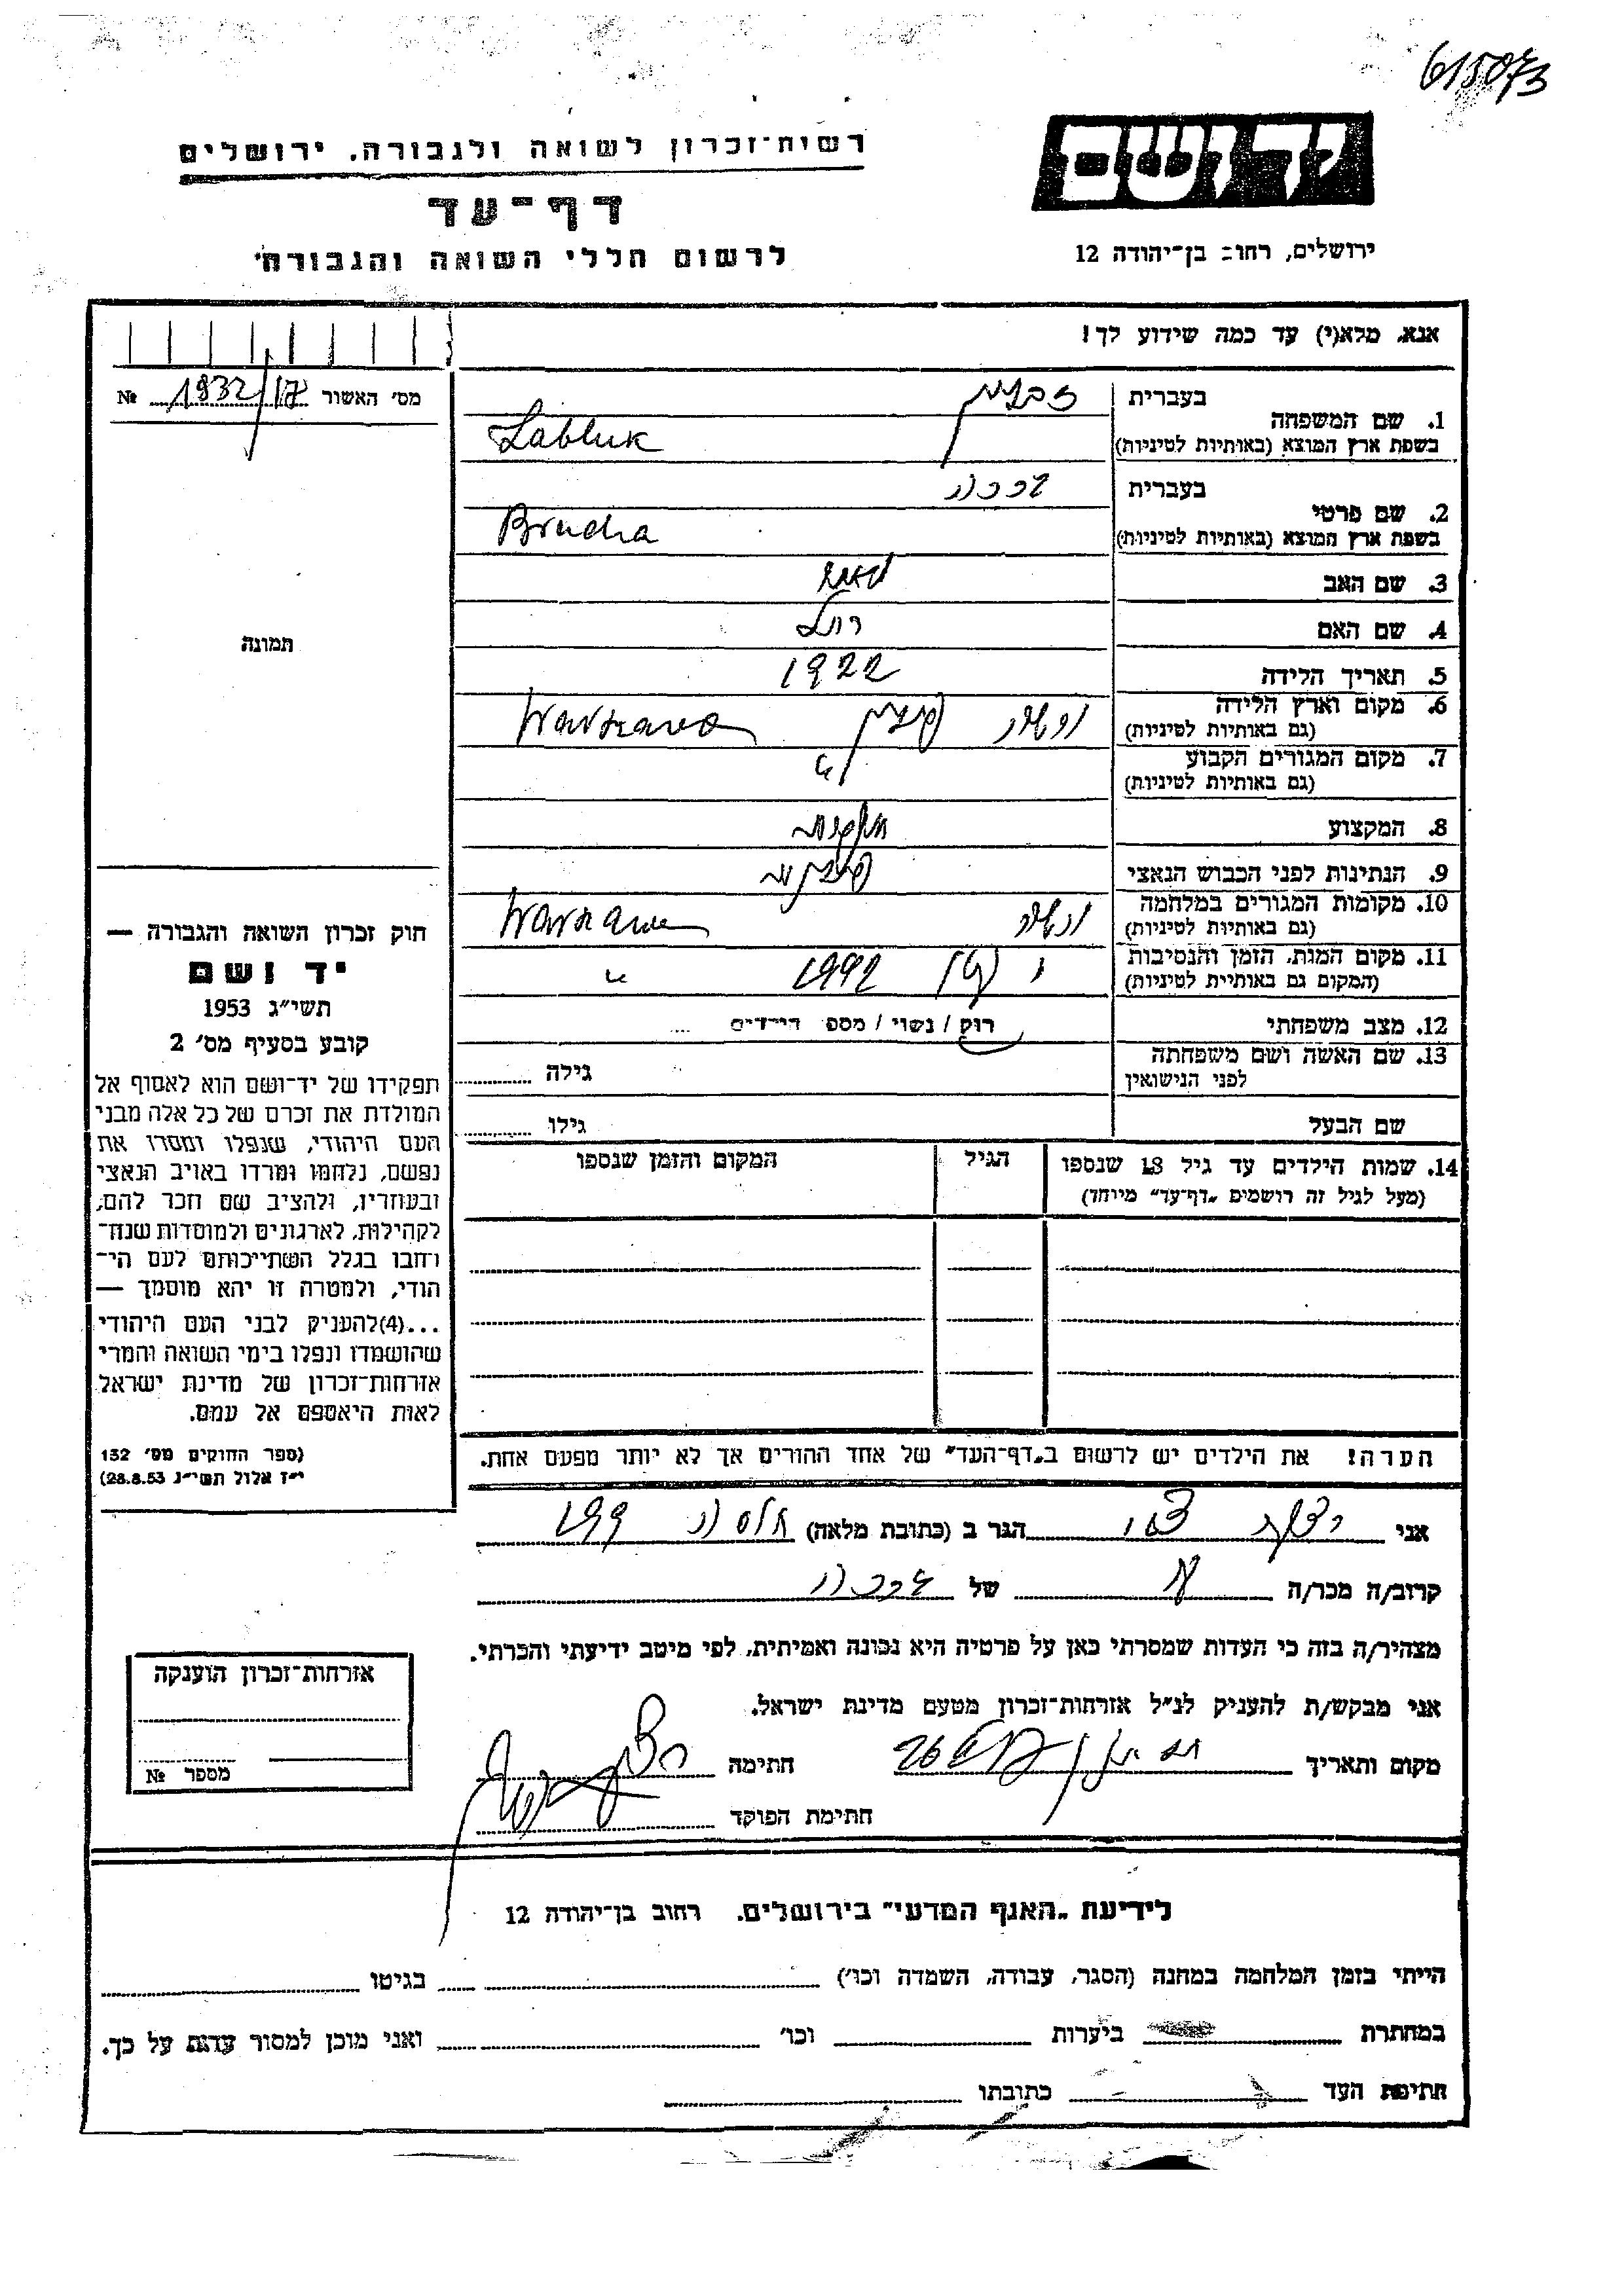 615073
רשות־זכרון לשואה ולגבורה, ירושלים
דף־עד
לרשום חללי השואה והגבורה
יד ושם
ירושלים, רחוב בן־יהודה 12
אנא, מלא(י) עד כמה שידוע לך!
מס' האשור 1932/17 №
תמונה
1. שם המשפחה
בעברית
בשפת ארץ המוצא (באותיות לטיניות) Zabluk
2. שם פרטי
בעברית ברכה
בשפת ארץ המוצא (באותיות לטיניות) Brucha
3. שם האב
4. שם האם רחל
5. תאריך הלידה 1922
6. מקום וארץ הלידה ורשה פולין Warszawa
(גם באותיות לטיניות)
7. מקום המגורים הקבוע
(גם באותיות לטיניות)
8. המקצוע
9. הנתינות לפני הכבוש הנאצי פולנית
10. מקומות המגורים במלחמה ורשה Warszawa
(גם באותיות לטיניות)
11. מקום המות, הזמן והנסיבות 1942
(המקום גם באותיות לטיניות)
12. מצב משפחתי רוק / נשוי / מספר הילדים
13. שם האשה ושם משפחתה
לפני הנישואין גילה
שם הבעל גילו
14. שמות הילדים עד גיל 18 שנספו הגיל המקום והזמן שנספו
(מעל לגיל זה רושמים „דף־עד" מיוחד)
הערה! את הילדים יש לרשום ב„דף־העד" של אחד ההורים אך לא יותר מפעם אחת.
חוק זכרון השואה והגבורה —
יד ושם
תשי"ג 1953
קובע בסעיף מס' 2
תפקידו של יד־ושם הוא לאסוף אל
המולדת את זכרם של כל אלה מבני
העם היהודי, שנפלו ומסרו את
נפשם, נלחמו ומרדו באויב הנאצי
ובעוזריו, ולהציב שם וזכר להם,
לקהילות, לארגונים ולמוסדות שנח־
רבו בגלל השתייכותם לעם הי־
הודי, ולמטרה זו יהא מוסמך —
...(4)להעניק לבני העם היהודי
שהושמדו ונפלו בימי השואה והמרי
אזרחות־זכרון של מדינת ישראל
לאות היאספם אל עמם.
(ספר החוקים מס' 132
י"ז אלול תשי"ג 28.8.53)
אני הגר ב (כתובת מלאה)
קרוב/ה מכר/ה של ברכה
מצהיר/ה בזה כי העדות שמסרתי כאן על פרטיה היא נכונה ואמיתית, לפי מיטב ידיעתי והכרתי.
אני מבקש/ת להעניק לנ"ל אזרחות־זכרון מטעם מדינת ישראל.
מקום ותאריך חתימה
חתימת הפוקד
אזרחות־זכרון הוענקה
מספר №
לידיעת „האגף המדעי" בירושלים, רחוב בן־יהודה 12
הייתי בזמן המלחמה במחנה (הסגר, עבודה, השמדה וכו') בגיטו
במחתרת ביערות וכו' ואני מוכן למסור עדות על כך.
חתימת העד כתובתו